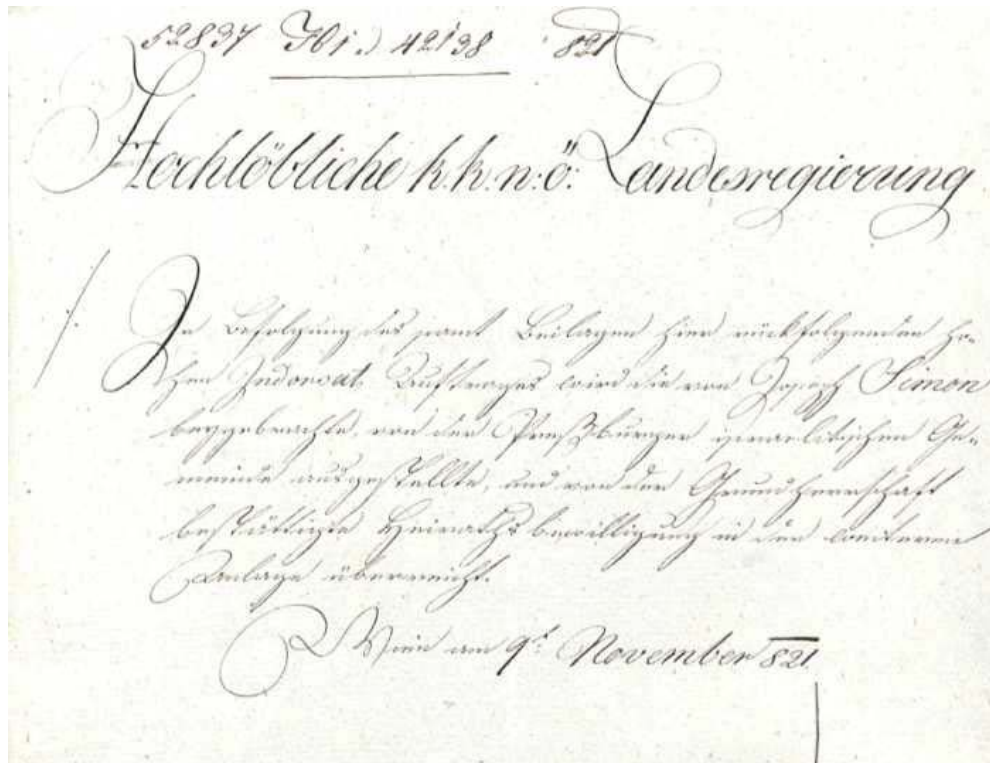 52837 42138 821
Hochlöbliche k. k. n: ö: Landesregierung
In Befolgung des samt Beilagen hier rückfolgenden ho-
hen Indorsat Auftrages wird die von Joseph Simon
beygebrachte, von der Preßburger israelitischen Ge-
meinde ausgestellte, und von der Grundherrschaft
bestättigte Heiraths bewilligung in der weiteren
Anlage überreicht.
Wien am 9t November 821